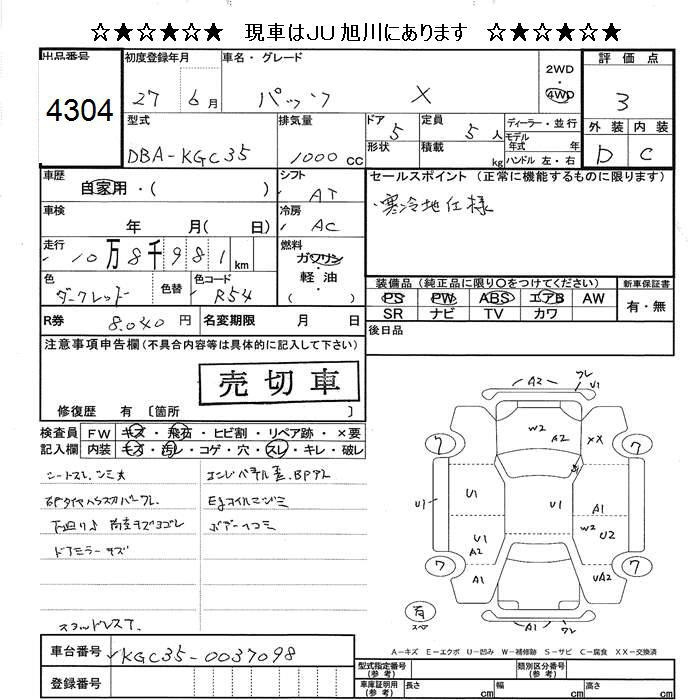 ☆★☆★☆★ 現車はJU旭川にあります ☆★☆★☆★
出品番号 初度登録年月 車名・グレード 評価点
4304 27 6月 パッソ X 2WD・4WD 3
型式 排気量 ドア 定員 ディーラー・並行 外装 内装
DBA-KGC35 1000cc 5 5人 モデル年式 年式 D C
形状 積載 kg ハンドル 左・右
車歴 自家用・( ) シフト AT セールスポイント (正常に機能するものに限ります)
・寒冷地仕様
車検 年 月( 日) 冷房 AC
走行 10万8千981km 燃料 ガソリン・軽油 ( )
色 ダークレッド 色替 色コード R54
装備品 (純正品に限り○をつけてください) 新車保証書
PS PW ABS エアB AW 有・無
SR ナビ TV カワ
R券 8.040円 名変期限 月 日 後日品
注意事項申告欄(不具合内容等は具体的に記入して下さい)
売切車
修復歴 有 〔箇所 〕
検査員 FW キズ・飛石・ヒビ割・リペア跡・×要
記入欄 内装 キズ・汚レ・コゲ・穴・スレ・キレ・破レ
ドアミラーキズ
スタッドレス
A2 U1
W2 A2 XX
7 7
U1 U1 U1 A1
W2 U2
U1 A2
7 7
A1 A2 UA2
有 A1
A-キズ E-エクボ U-凹み W-補修跡 S-サビ C-腐食 XX-交換済
車台番号 KGC35-0037098
登録番号
型式指定番号(参考) 類別区分番号(参考)
車庫証明用(参考) 長さ cm 幅 cm 高さ cm